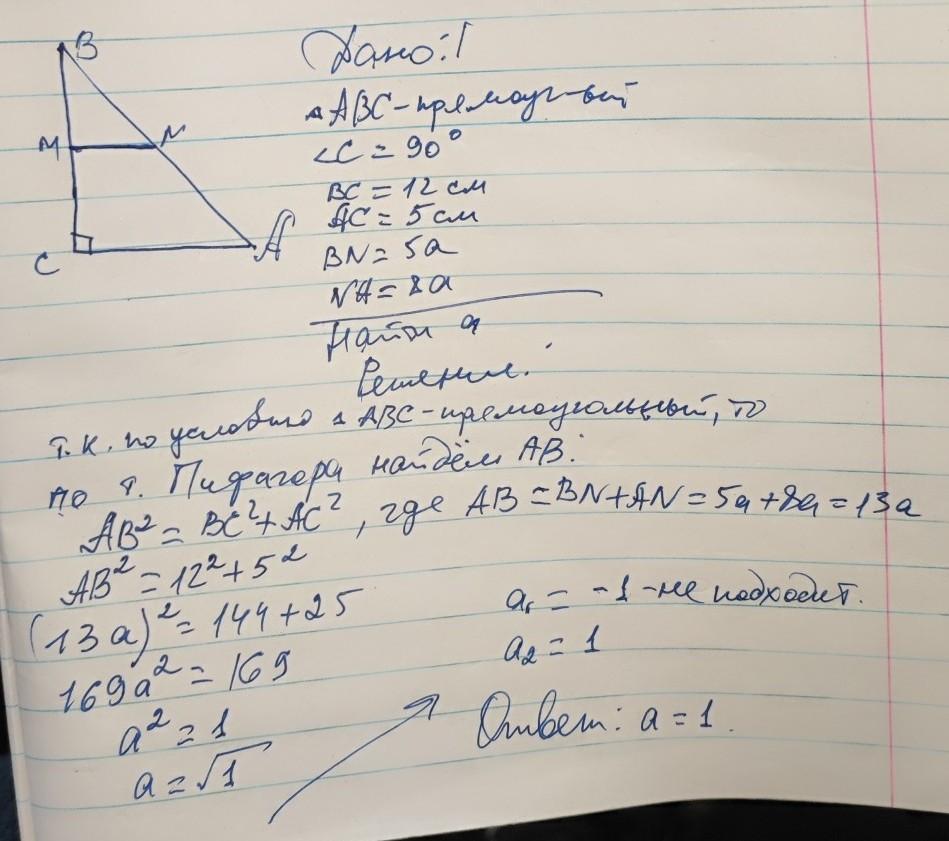 B
M N
C A
Дано:
△ABC-прямоуг-ый
∠C = 90°
BC = 12 см
AC = 5 см
BN = 5a
NA = 8a
Найти a
Решение:
т.к. по условию △ABC-прямоугольный, то
по т. Пифагора найдём AB:
AB² = BC² + AC², где AB = BN + AN = 5a + 8a = 13a
AB² = 12² + 5²
(13a)² = 144 + 25
169a² = 169
a² = 1
a = √1
a₁ = -1 - не подходит.
a₂ = 1
Ответ: a = 1.